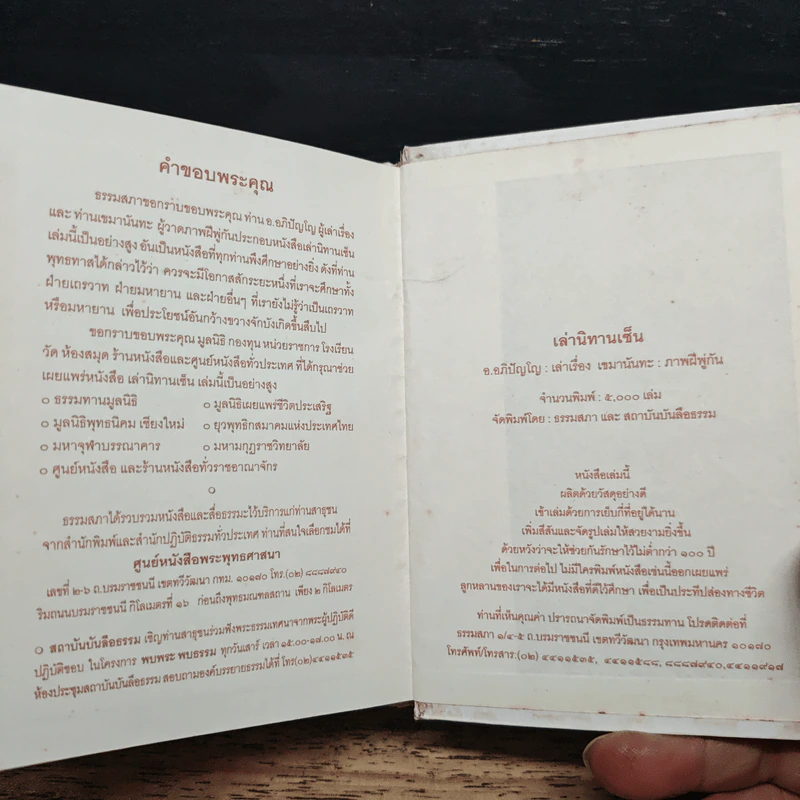 คำขอบพระคุณ
ธรรมสภาขอกราบขอบพระคุณ ท่าน อ.อภิปัญโญ ผู้เล่าเรื่อง
และ ท่านเขมานันทะ ผู้วาดภาพฝีพู่กันประกอบหนังสือเล่านิทานเซ็น
เล่มนี้เป็นอย่างสูง อันเป็นหนังสือที่ทุกท่านพึงศึกษาอย่างยิ่ง ดังที่ท่าน
พุทธทาสได้กล่าวไว้ว่า ควรจะมีโอกาสสักระยะหนึ่งที่เราจะศึกษาทั้ง
ฝ่ายเถรวาท ฝ่ายมหายาน และฝ่ายอื่นๆ ที่เรายังไม่รู้ว่าเป็นเถรวาท
หรือมหายาน เพื่อประโยชน์อันกว้างขวางจักบังเกิดขึ้นสืบไป
ขอกราบขอบพระคุณ มูลนิธิ กองทุน หน่วยราชการ โรงเรียน
วัด ห้องสมุด ร้านหนังสือและศูนย์หนังสือทั่วประเทศ ที่ได้กรุณาช่วย
เผยแพร่หนังสือ เล่านิทานเซ็น เล่มนี้เป็นอย่างสูง
๐ ธรรมทานมูลนิธิ ๐ มูลนิธิเผยแพร่ชีวิตประเสริฐ
๐ มูลนิธิพุทธนิคม เชียงใหม่ ๐ ยุวพุทธิกสมาคมแห่งประเทศไทย
๐ มหาจุฬาบรรณาคาร ๐ มหามกุฏราชวิทยาลัย
๐ ศูนย์หนังสือ และร้านหนังสือทั่วราชอาณาจักร
๐
ธรรมสภาได้รวบรวมหนังสือและสื่อธรรมะไว้บริการแก่ท่านสาธุชน
จากสำนักพิมพ์และสำนักปฏิบัติธรรมทั่วประเทศ ท่านที่สนใจเลือกชมได้ที่
ศูนย์หนังสือพระพุทธศาสนา
เลขที่ ๒-๖ ถ.บรมราชชนนี เขตทวีวัฒนา กทม. ๑๐๑๗๐ โทร.(๐๒) ๘๘๘๗๙๔๐
ริมถนนบรมราชชนนี กิโลเมตรที่ ๑๖ ก่อนถึงพุทธมณฑลสถาน เพียง ๒ กิโลเมตร
๐ สถาบันบันลือธรรม เชิญท่านสาธุชนร่วมฟังพระธรรมเทศนาจากพระผู้ปฏิบัติดี
ปฏิบัติชอบ ในโครงการ พบพระ พบธรรม ทุกวันเสาร์ เวลา ๑๕.๐๐-๑๗.๐๐ น. ณ
ห้องประชุมสถาบันบันลือธรรม สอบถามองค์บรรยายธรรมได้ที่ โทร(๐๒)๔๔๑๑๕๓๕
เล่านิทานเซ็น
อ.อภิปัญโญ : เล่าเรื่อง เขมานันทะ : ภาพฝีพู่กัน
จำนวนพิมพ์ : ๕,๐๐๐ เล่ม
จัดพิมพ์โดย : ธรรมสภา และ สถาบันบันลือธรรม
หนังสือเล่มนี้
ผลิตด้วยวัสดุอย่างดี
เข้าเล่มด้วยการเย็บกี่ที่อยู่ได้นาน
เพิ่มสีสันและจัดรูปเล่มให้สวยงามยิ่งขึ้น
ด้วยหวังว่าจะให้ช่วยกันรักษาไว้ไม่ต่ำกว่า ๑๐๐ ปี
เพื่อในการต่อไป ไม่มีใครพิมพ์หนังสือเช่นนี้ออกเผยแพร่
ลูกหลานของเราจะได้มีหนังสือที่ดีไว้ศึกษา เพื่อเป็นประทีปส่องทางชีวิต
ท่านที่เห็นคุณค่า ปรารถนาจัดพิมพ์เป็นธรรมทาน โปรดติดต่อที่
ธรรมสภา ๑/๔-๕ ถ.บรมราชชนนี เขตทวีวัฒนา กรุงเทพมหานคร ๑๐๑๗๐
โทรศัพท์/โทรสาร:(๐๒) ๔๔๑๑๕๓๕, ๔๔๑๑๕๘๘, ๘๘๘๗๙๔๐,๔๔๑๑๙๑๗